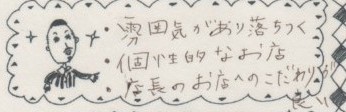 ・雰囲気があり落ちつく
・個性的なお店
店長のお店へのこだわりが
良い